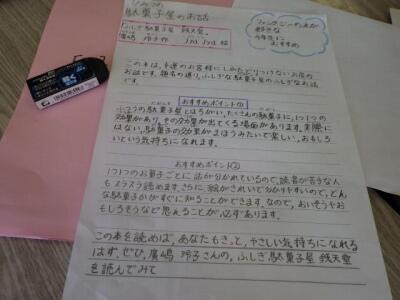 ひみつの
駄菓子屋のお話
ふしぎ駄菓子屋 銭天堂
廣嶋 玲子作
ファンタジーの本が
好きな
おすすめ
この本は、幸運のお客様にしかたどりつけないお店の
お話です。題名の通り、ふしぎな駄菓子屋のふしぎなお話
です。
おすすめポイント①
ふつうの駄菓子屋とはちがい、たくさんの駄菓子に、1つ1つの
効果があり、その効果が出てくる場面があります。実際に
はない、駄菓子の効果がまほうみたいで楽しい、おもしろ
いという気持ちになれます。
おすすめポイント②
1つ1つのお菓子ごとに話が分かれているので、読書が苦手な人
もスラスラ読めます。さらに、絵がきれいで分かりやすいので、どん
な駄菓子かがすぐに知ることができます。なので、おいそうやお
もしろそうなど思えることが、必ずあります。
この本を読めば、あなたもきっと、やさしい気持ちになれる
はず。ぜひ、廣嶋 玲子さんの、ふしぎ駄菓子屋 銭天堂
を読んでみて